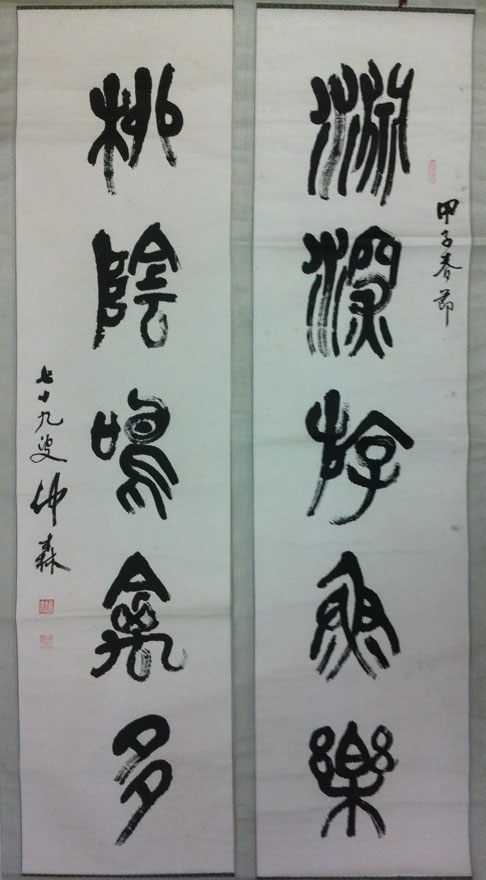 淵深斿魚樂
甲子春節
柳陰鳴禽多
七十九叟仲森